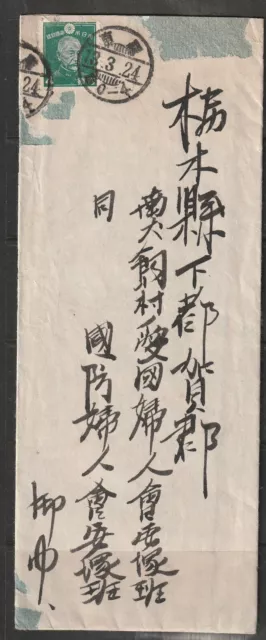 栃木縣下都賀郡
南犬飼村愛国婦人會安塚班
同 國防婦人會安塚班
御中、
13.3.24